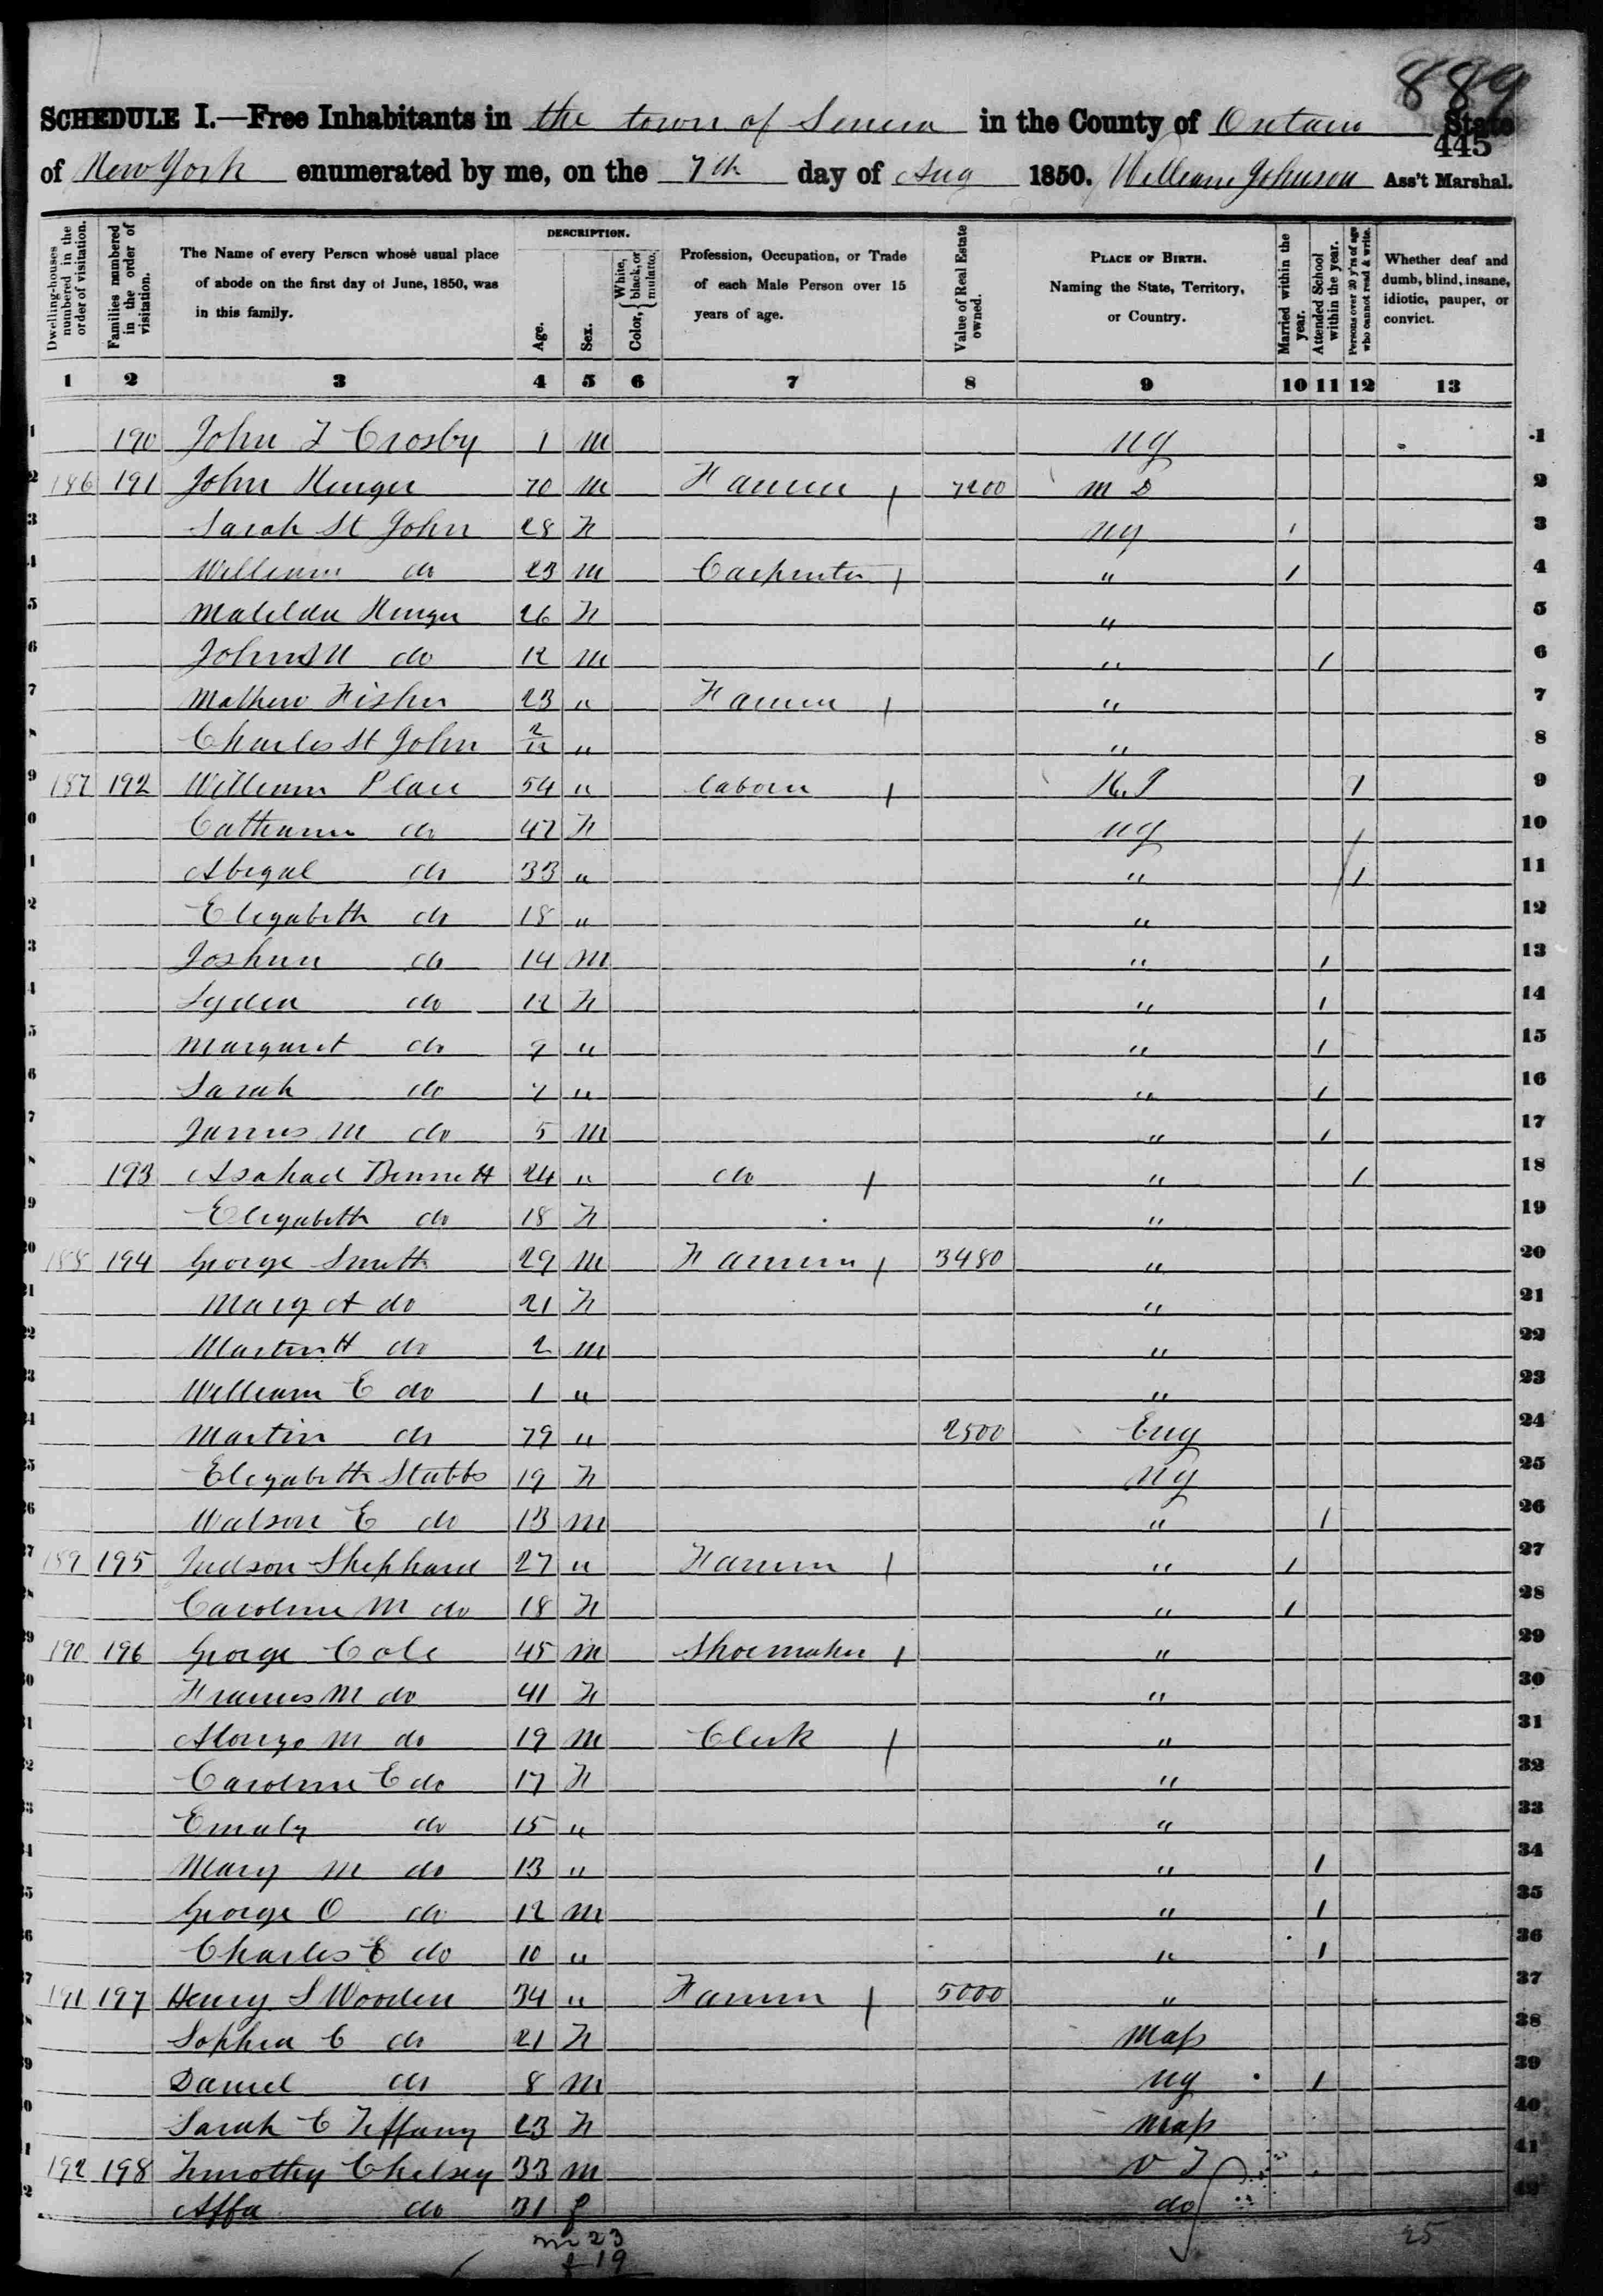 889
SCHEDULE I.—Free Inhabitants in the town of Seneca in the County of Ontario State
445
of New York enumerated by me, on the 7th day of Aug 1850. William Johnson Ass't Marshal.
Dwelling-houses numbered in the order of visitation.
Families numbered in the order of visitation.
The Name of every Person whose usual place of abode on the first day of June, 1850, was in this family.
DESCRIPTION.
Age.
Sex.
Color, { White, black, or mulatto.
Profession, Occupation, or Trade of each Male Person over 15 years of age.
Value of Real Estate owned.
PLACE OF BIRTH. Naming the State, Territory, or Country.
Married within the year.
Attended School within the year.
Persons over 20 y'rs of age who cannot read & write.
Whether deaf and dumb, blind, insane, idiotic, pauper, or convict.
1 2 3 4 5 6 7 8 9 10 11 12 13
1 190 John Crosby 1 M NY 1
2 186 191 John 70 M Farmer 7200 M D 2
3 Sarah St John 28 F NY 1 3
4 William do 23 M Carpenter " 1 4
5 Matilda 26 F " 5
6 John do 12 M " 1 6
7 Mathew Fisher 23 " Farmer " 7
8 Charles St John 2/12 " " 8
9 187 192 William Place 54 " Laborer 1 9
10 Catharine do 47 F NY 1 10
11 Abigal do 33 " " 1 11
12 Elizabeth do 18 " " 12
13 Joshua do 14 M " 1 13
14 Lydia do 12 F " 1 14
15 Margaret do 9 " " 1 15
16 Sarah do 7 " " 1 16
17 James M do 5 M " 1 17
18 193 Asahael Bennett 24 " do " 1 18
19 Elizabeth do 18 F " 19
20 188 194 George Smith 29 M Farmer 3480 " 20
21 Mary A do 21 F " 21
22 Martin H do 2 M " 22
23 William E do 1 " " 23
24 Martin do 79 " 2500 Eng 24
25 Elizabeth Stubbs 19 F NY 25
26 Watson E do 13 M " 1 26
27 189 195 Judson Shephard 27 " Farmer " 1 27
28 Caroline M do 18 F " 1 28
29 190 196 George Cole 45 M Shoemaker " 29
30 Frances M do 41 F " 30
31 Alonzo M do 19 M Clerk " 31
32 Caroline E do 17 F " 32
33 Emaly do 15 " " 33
34 Mary M do 13 " " 1 34
35 George O do 12 M " 1 35
36 Charles E do 10 " " 1 36
37 191 197 Henry S Wooden 34 " Farmer 5000 " 37
38 Sophia C do 21 F Mass 38
39 Daniel do 8 M NY 1 39
40 Sarah C Tiffany 23 F Mass 40
41 192 198 Timothy Chelsey 33 M V T 41
42 Affa do 31 f do 42
m 23
f 19
25